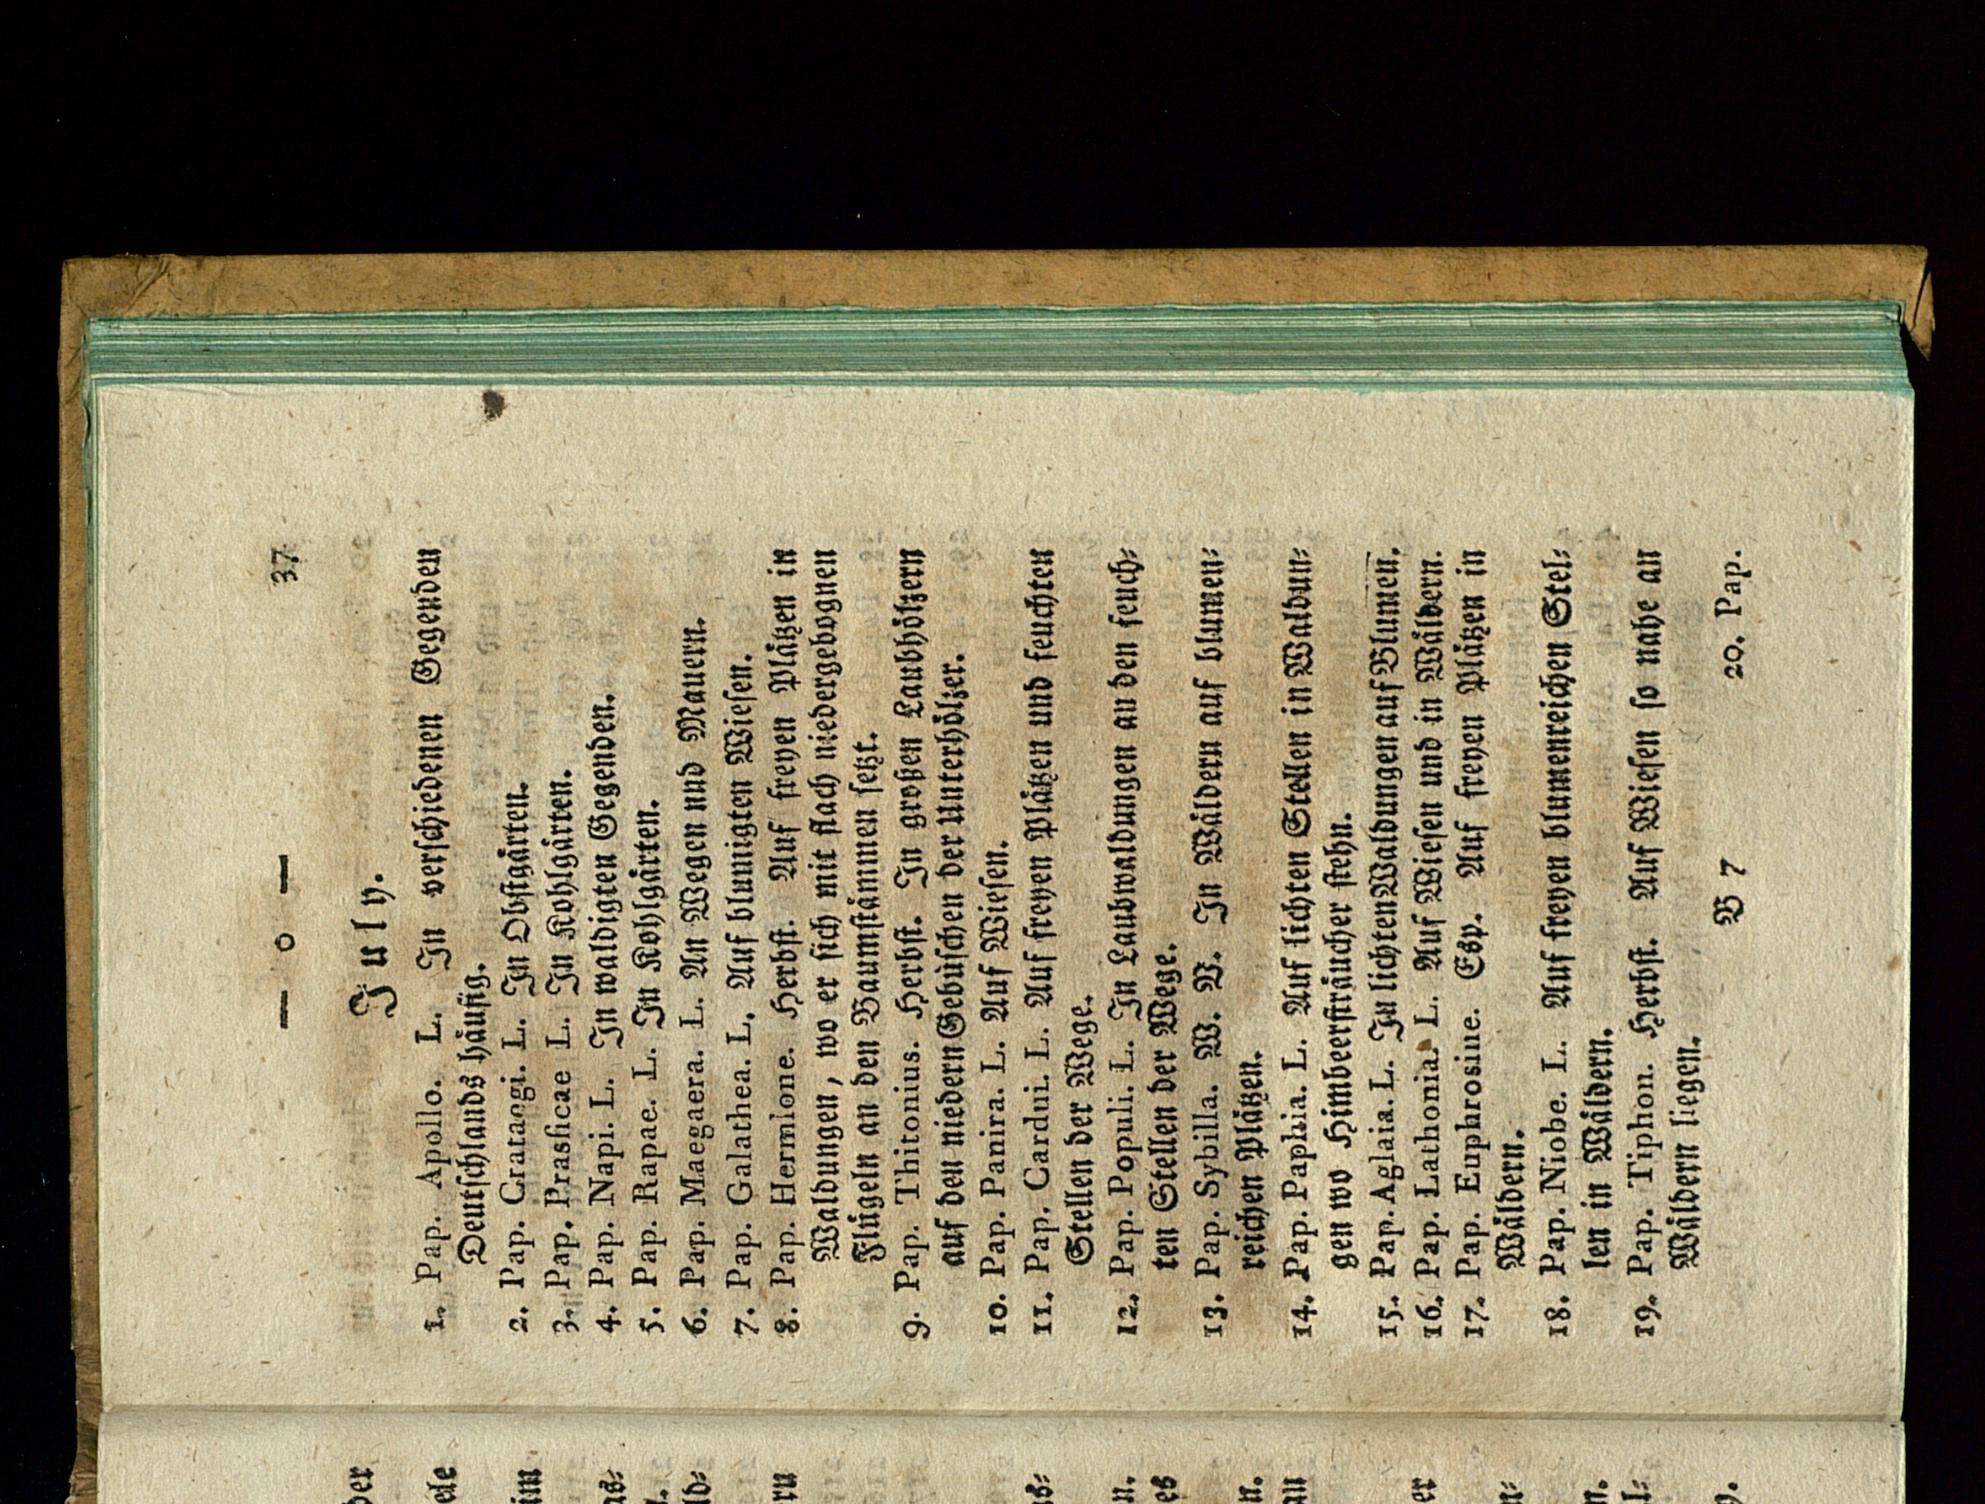 — o — 37
July.
1. Pap. Apollo. L. In verschiedenen Gegenden
Deutschlands häufig.
2. Pap. Crataegi. L. In Obstgärten.
3. Pap. Prassicae L. In Kohlgärten.
4. Pap. Napi. L. In waldigten Gegenden.
5. Pap. Rapae. L. In Kohlgärten.
6. Pap. Maegaera. L. An Wegen und Mauern.
7. Pap. Galathea. L. Auf blumigten Wiesen.
8. Pap. Hermione. Herbst. Auf freyen Plätzen in
Waldungen, wo er sich mit flach niedergebognen
Flügeln an den Baumstämmen setzt.
9. Pap. Thitonius. Herbst. In großen Laubhöltzern
auf den niedern Gebüschen der Unterhöltzer.
10. Pap. Panira. L. Auf Wiesen.
11. Pap. Cardui. L. Auf freyen Plätzen und feuchten
Stellen der Wege.
12. Pap. Populi. L. In Laubwaldungen an den feuch-
ten Stellen der Wege.
13. Pap. Sybilla. W. V. In Wäldern auf blumen-
reichen Plätzen.
14. Pap. Paphia. L. Auf lichten Stellen in Waldun-
gen wo Himbeersträucher stehn.
15. Pap. Aglaia. L. In lichten Waldungen auf Blumen.
16. Pap. Lathonia. L. Auf Wiesen und in Wäldern.
17. Pap. Euphrosine. Esp. Auf freyen Plätzen in
Wäldern.
18. Pap. Niobe. L. Auf freyen blumenreichen Stel-
len in Wäldern.
19. Pap. Tiphon. Herbst. Auf Wiesen so nahe an
Wäldern liegen.
B 7 20. Pap.